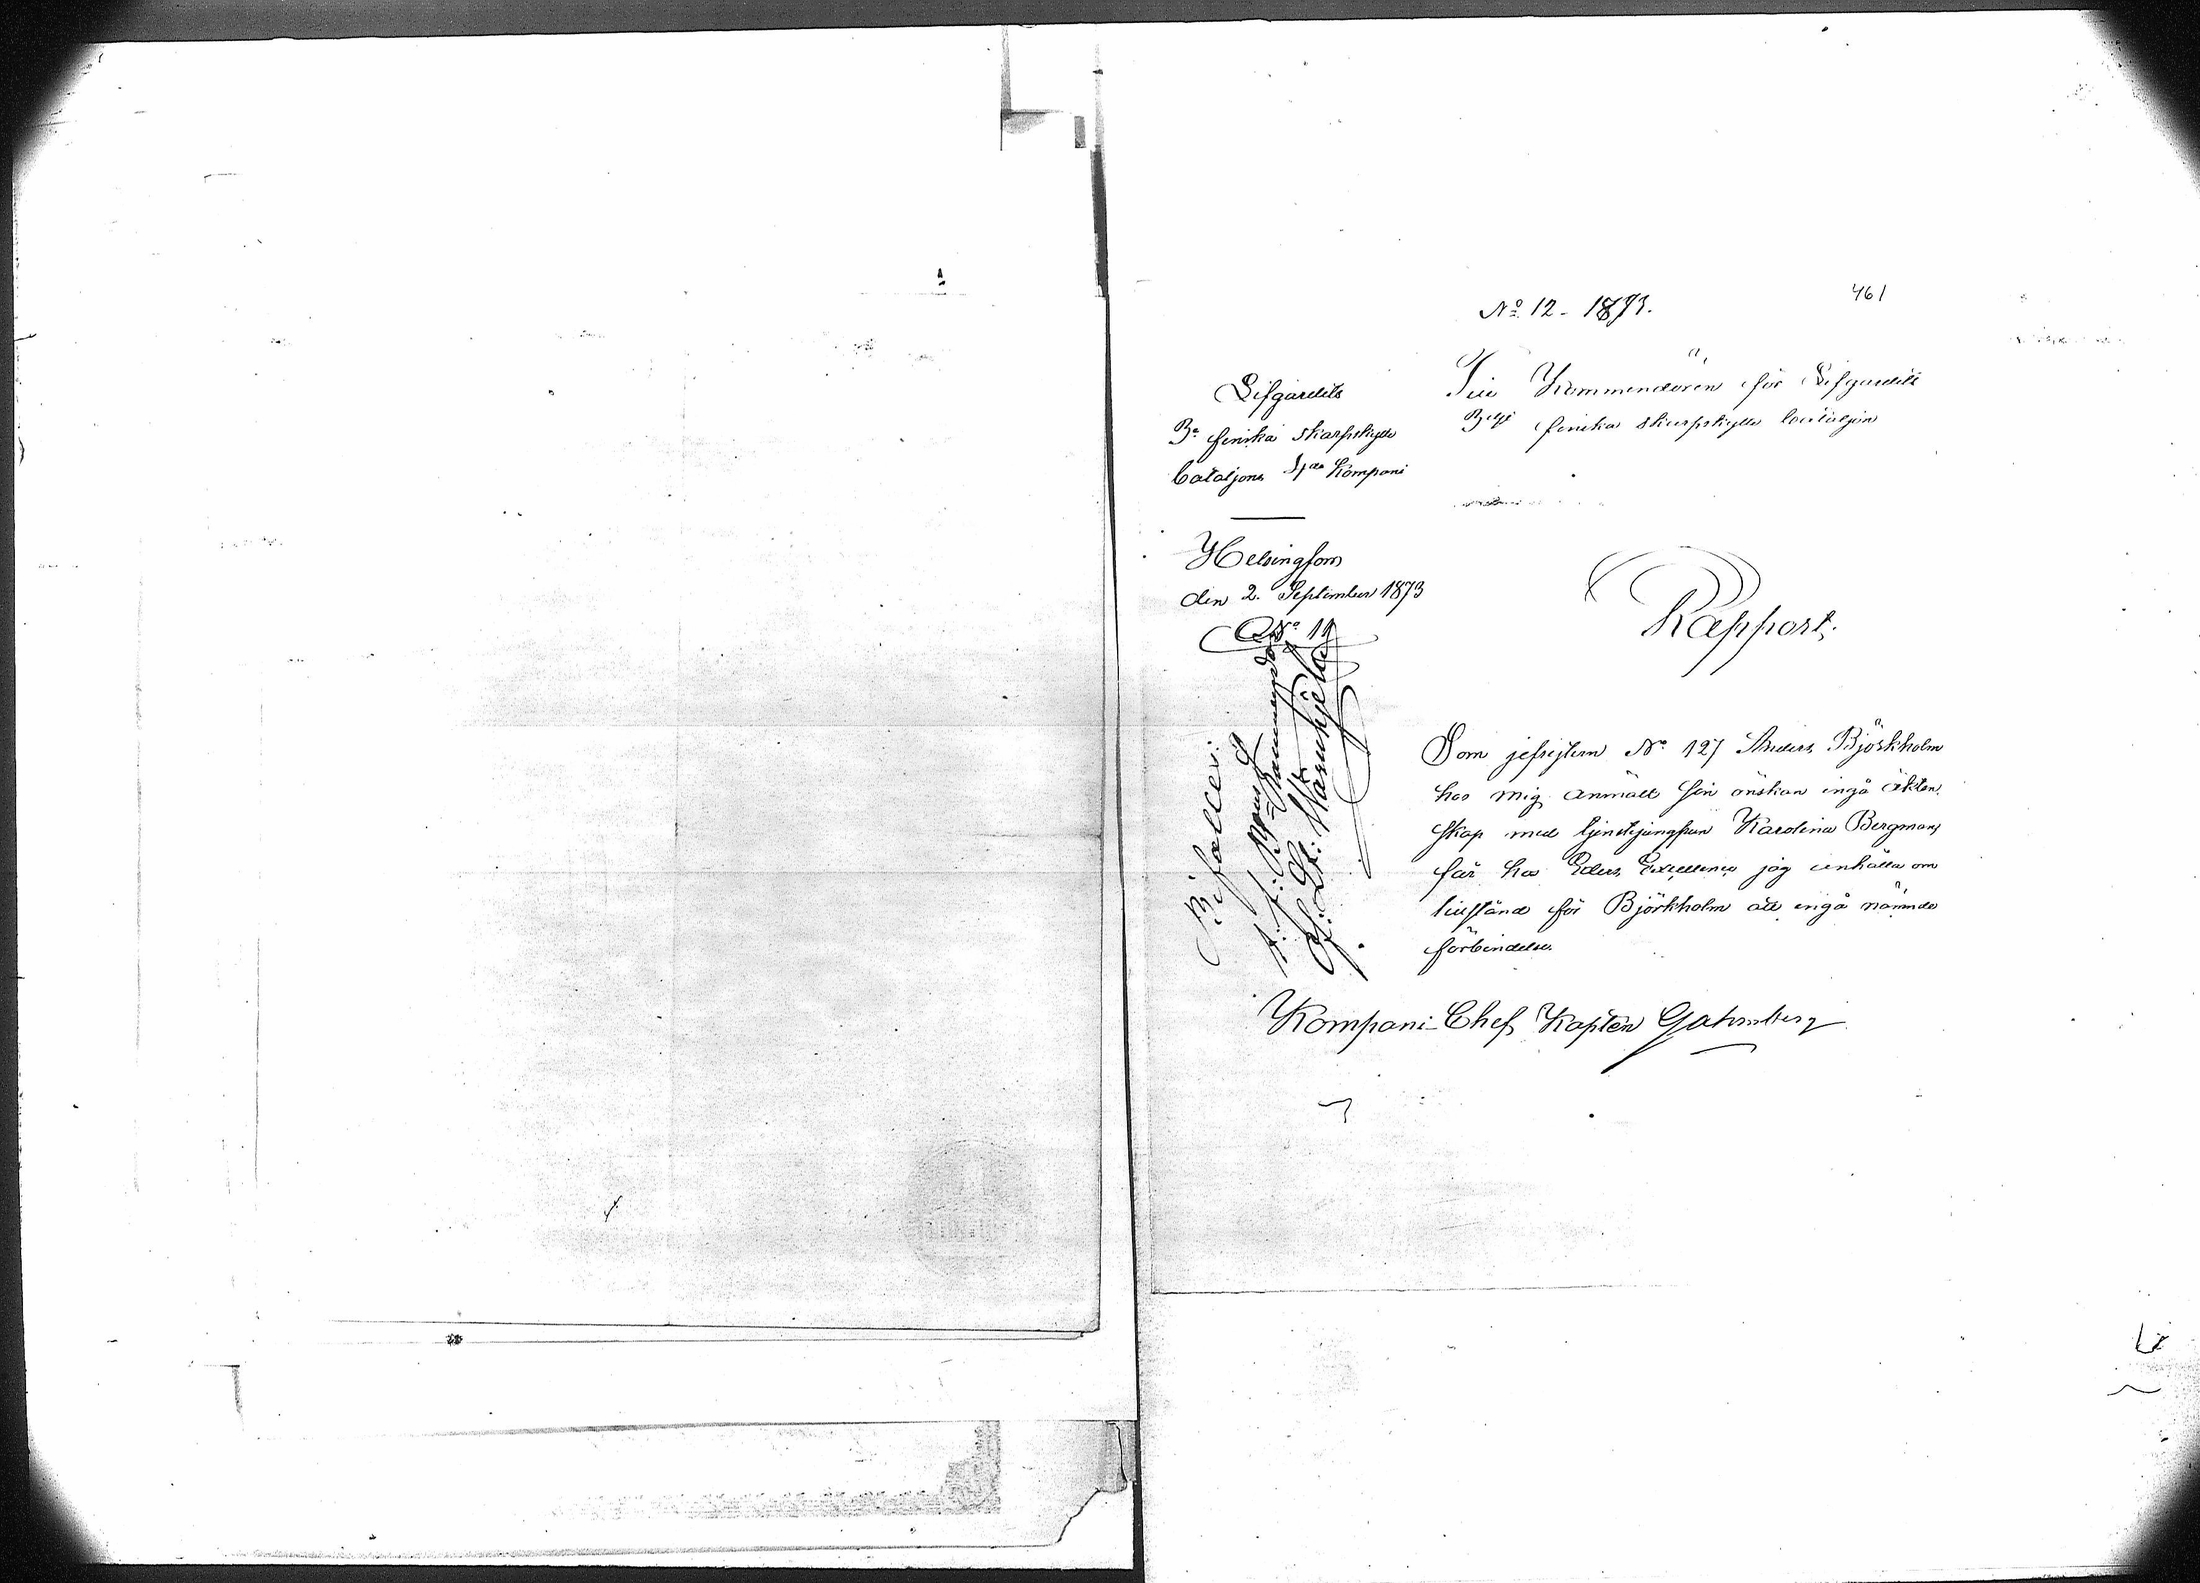 No 12 - 1873.
461
Lifgardets
3e finska skarpskytte
bataljons 4de Kompani
Helsingfors
den 2. September 1873
No 11
Till Kommendören för Lifgardets
3dje finska skarpskytte bataljon
Rapport.
Som jefrejtern No 127 Anders Björkholm
hos mig anmält sin önskan ingå äkten-
skap med tjenstejungfrun Karolina Bergman,
får hos Eders Excellence jag anhålla om
tillstånd för Björkholm att ingå nämnde
förbindelse.
Kompani-Chef, Kapten
Bifalles: